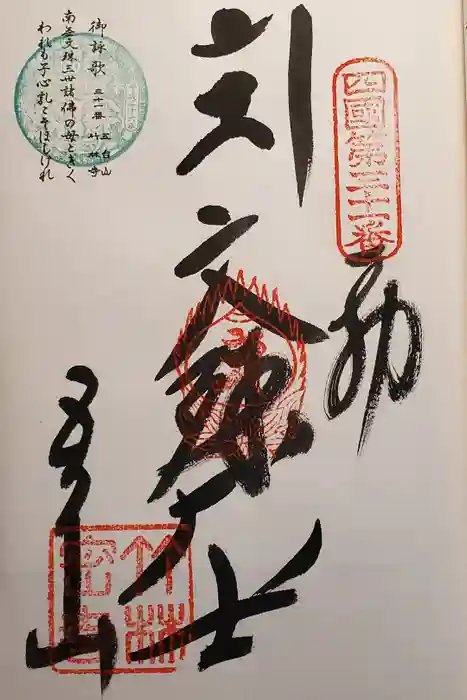 四國第三十一番
奉
文殊大士
五台山
竹林
密寺
御詠歌 三十一番 五台山 竹林寺
南無文殊三世諸佛の母ときく
われも子心乳こそほしけれ